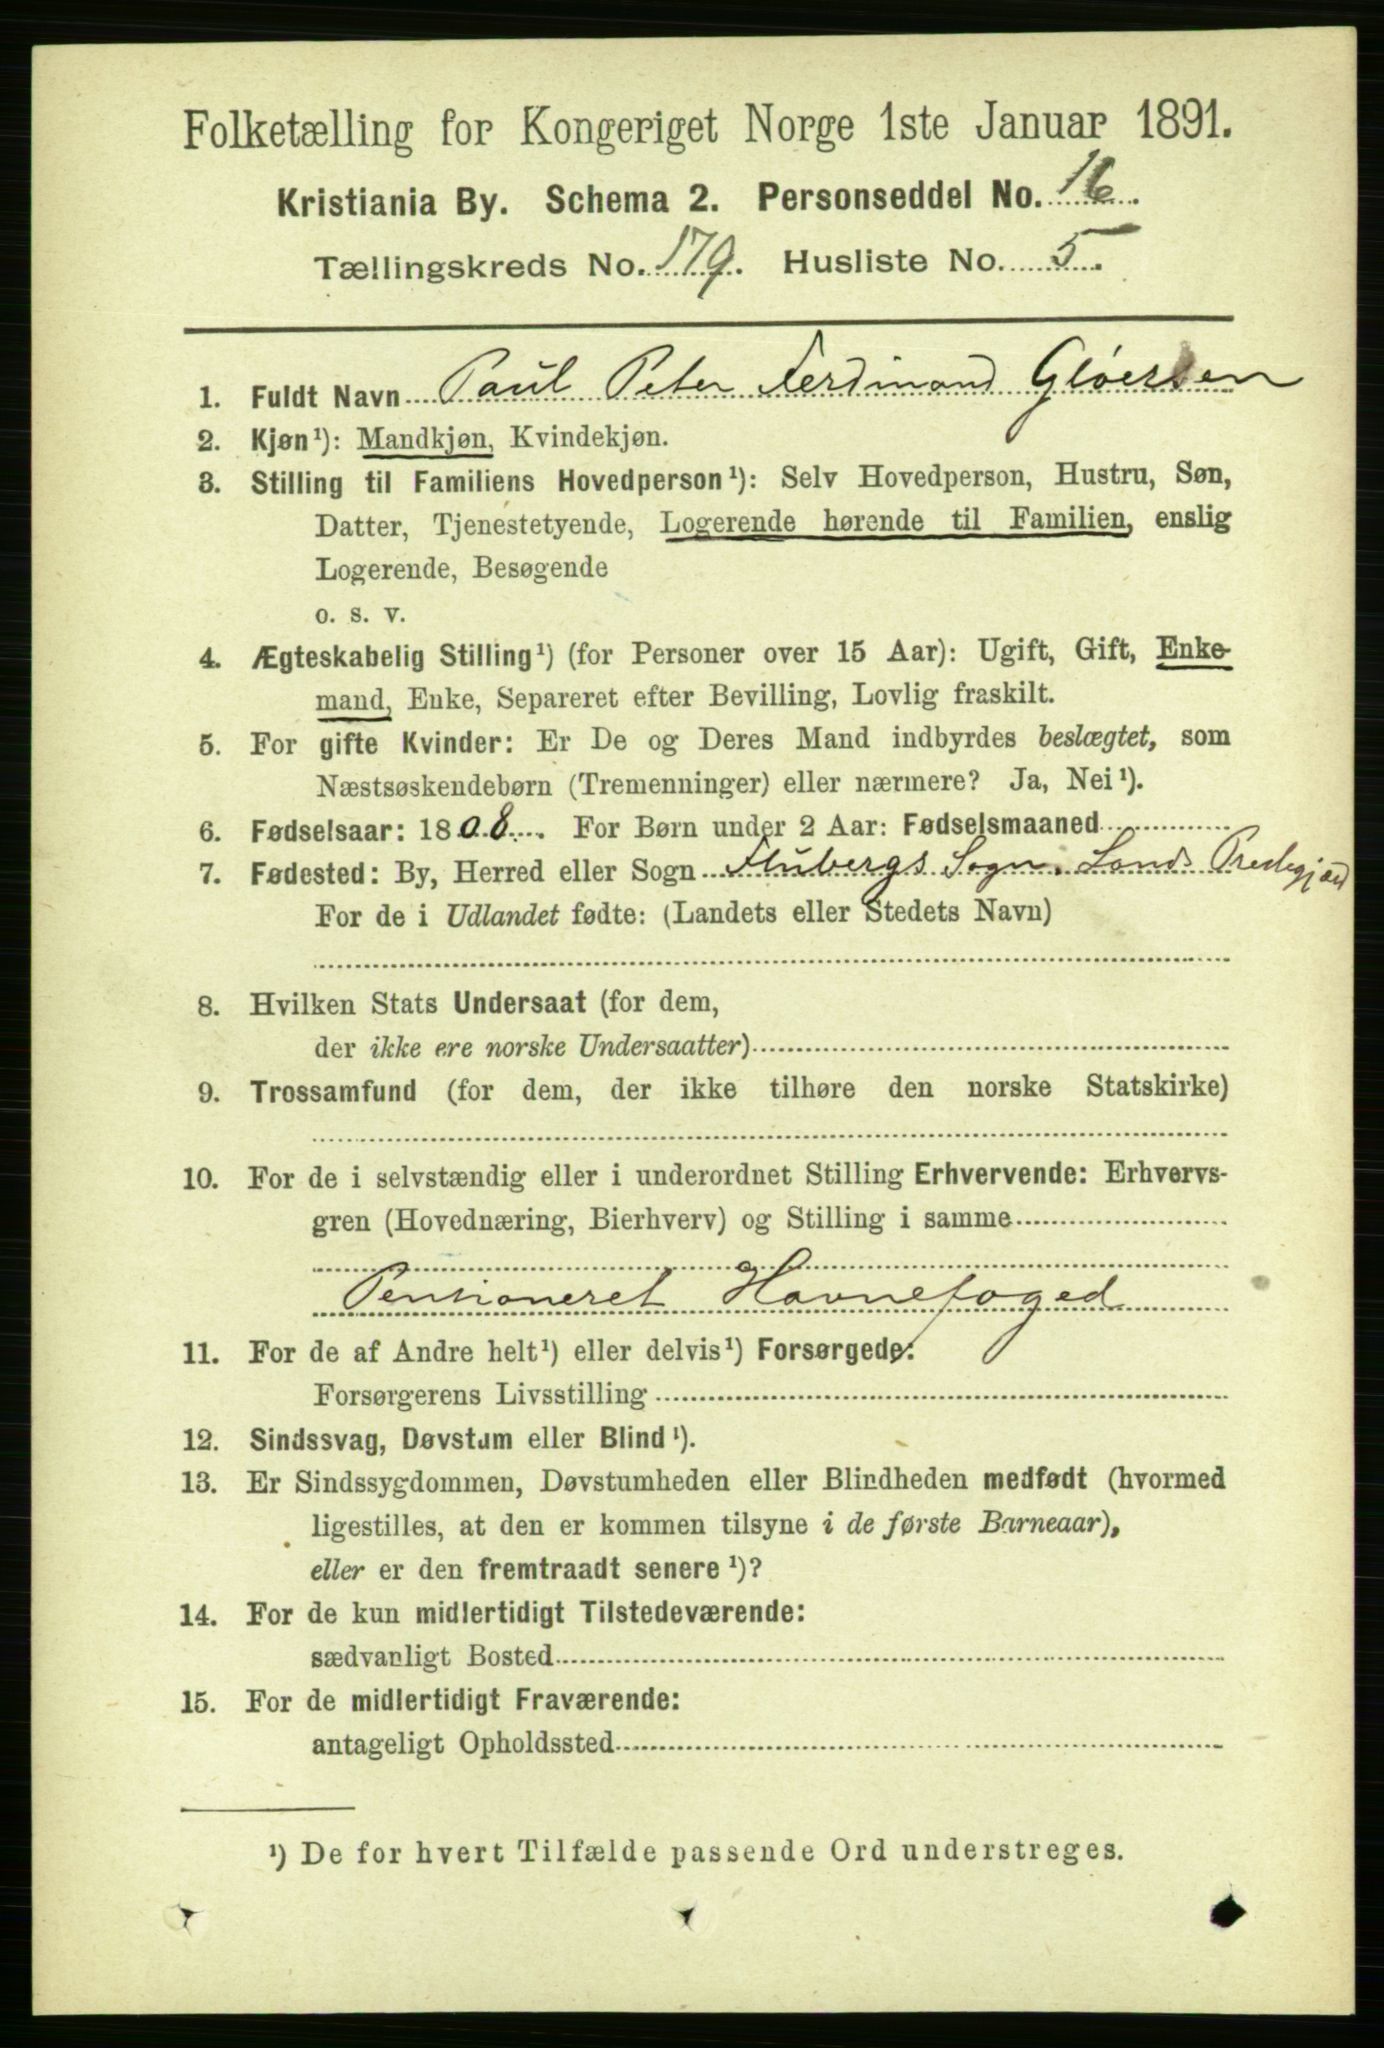 Folketælling for Kongeriget Norge 1ste Januar 1891.
Kristiania By. Schema 2. Personseddel No. 16.
Tællingskreds No. 179. Husliste No. 5.
1. Fuldt Navn Paul Peter Ferdinand Gløersen
2. Kjøn¹): Mandkjøn, Kvindekjøn.
3. Stilling til Familiens Hovedperson¹): Selv Hovedperson, Hustru, Søn,
Datter, Tjenestetyende, Logerende hørende til Familien, enslig
Logerende, Besøgende
o. s. v.
4. Ægteskabelig Stilling¹) (for Personer over 15 Aar): Ugift, Gift, Enke-
mand, Enke, Separeret efter Bevilling, Lovlig fraskilt.
5. For gifte Kvinder: Er De og Deres Mand indbyrdes beslægtet, som
Næstsøskendebørn (Tremenninger) eller nærmere? Ja, Nei¹).
6. Fødselsaar: 1808. For Børn under 2 Aar: Fødselsmaaned
7. Fødested: By, Herred eller Sogn Flubergs Sogn. Lands Prestegjæld
For de i Udlandet fødte: (Landets eller Stedets Navn)
8. Hvilken Stats Undersaat (for dem,
der ikke ere norske Undersaatter)
9. Trossamfund (for dem, der ikke tilhøre den norske Statskirke)
10. For de i selvstændig eller i underordnet Stilling Erhvervende: Erhvervs-
gren (Hovednæring, Bierhverv) og Stilling i samme
Pensioneret Havnefoged
11. For de af Andre helt¹) eller delvis¹) Forsørgede:
Forsørgerens Livsstilling
12. Sindssvag, Døvstum eller Blind¹).
13. Er Sindssygdommen, Døvstumheden eller Blindheden medfødt (hvormed
ligestilles, at den er kommen tilsyne i de første Barneaar),
eller er den fremtraadt senere¹)?
14. For de kun midlertidigt Tilstedeværende:
sædvanligt Bosted
15. For de midlertidigt Fraværende:
antageligt Opholdssted
¹) De for hvert Tilfælde passende Ord understreges.